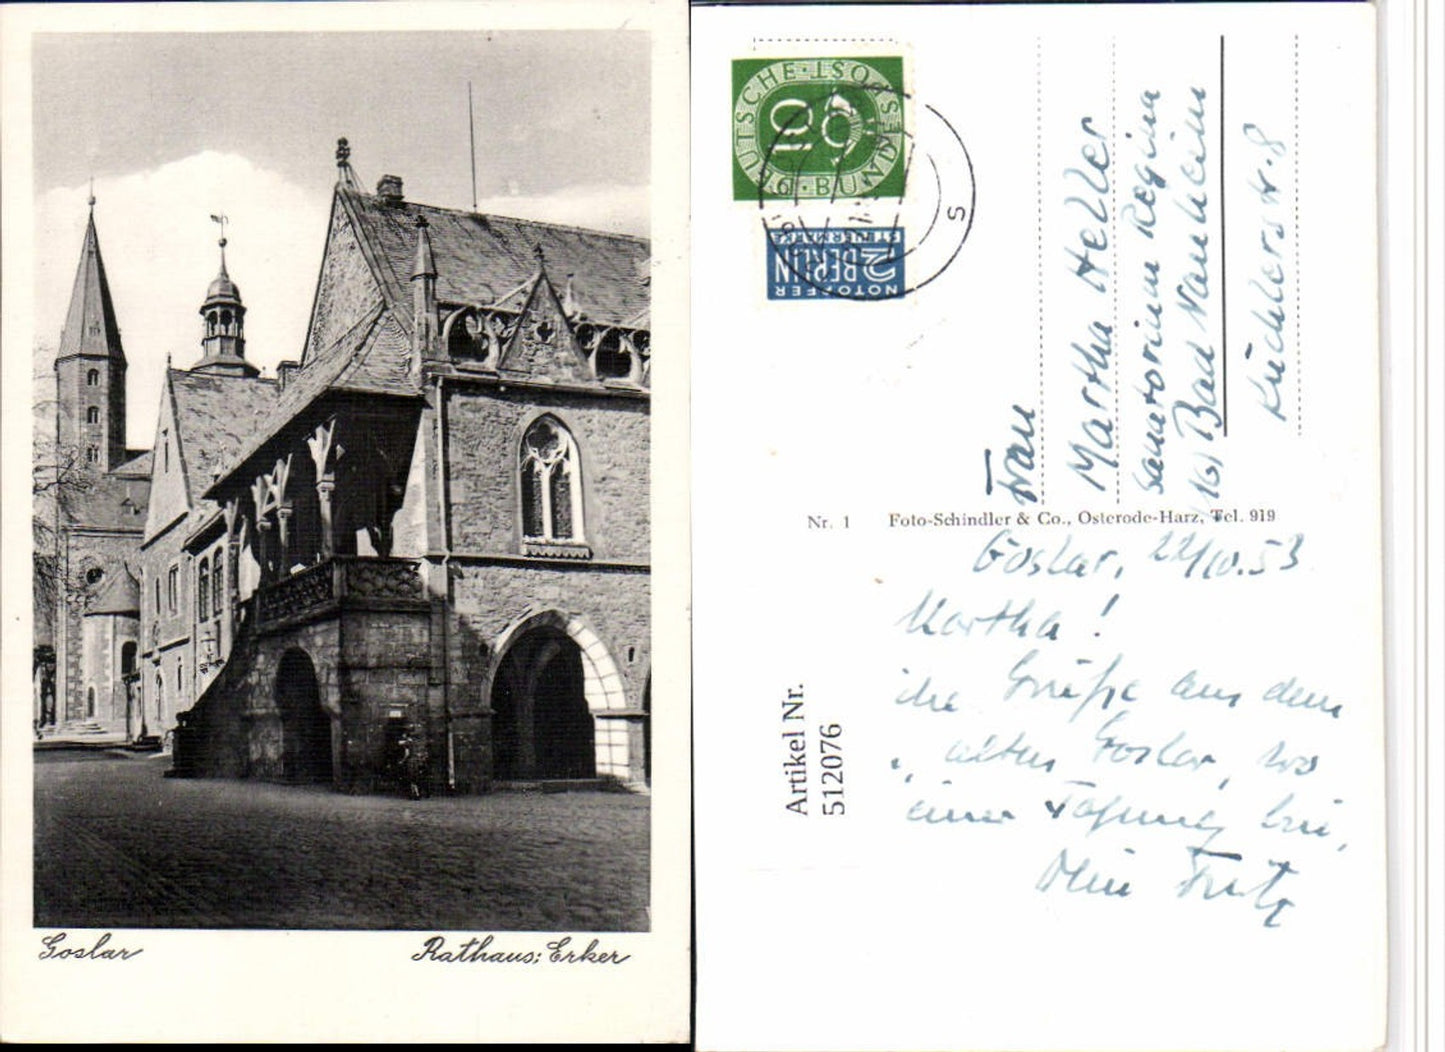 Goslar
Rathaus: Erker
DEUTSCHE BUNDESPOST
10
NOTOPFER
2 BERLIN
STEUERMARKE
Frau
Martha Heller
Sanatorium Regina
(16) Bad Nauheim
Küchlerstr. 8
Nr. 1 Foto-Schindler & Co., Osterode-Harz, Tel. 919
Artikel Nr.
512076
Goslar, 22/10.53
Martha!
Grüße aus dem
alten Goslar, wo
einer Tagung bin,
Dein Fritz